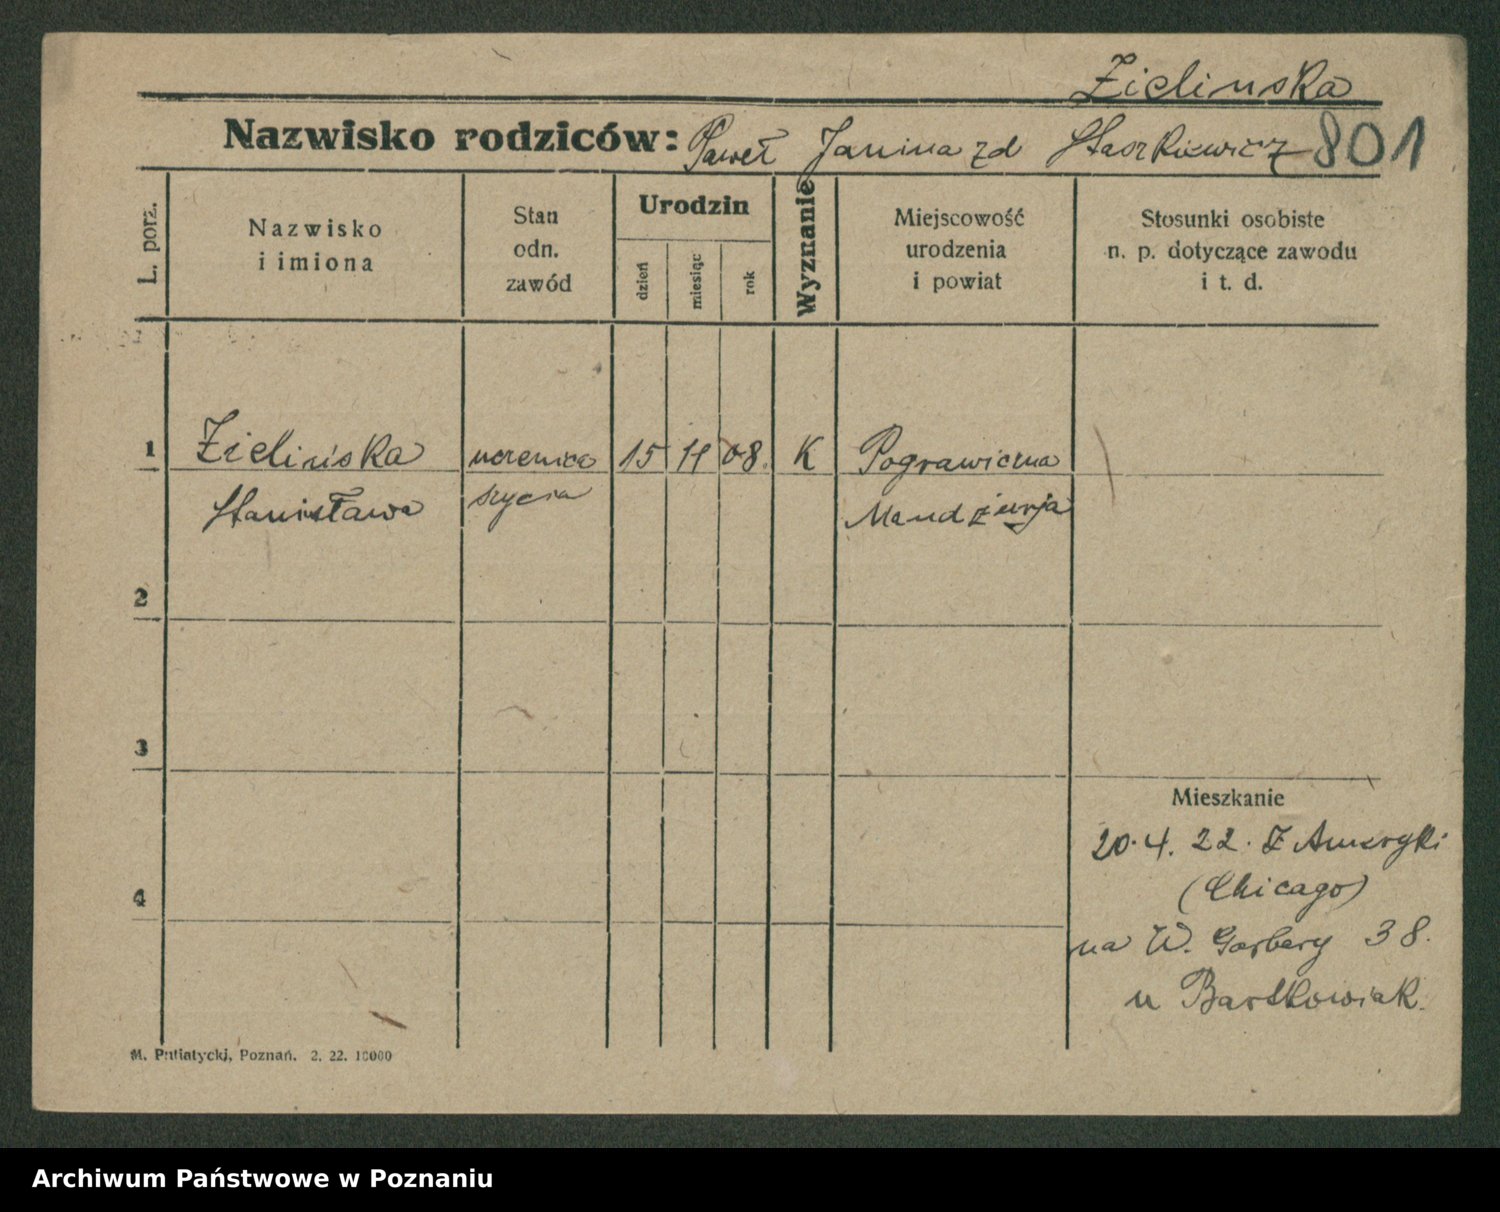 Zielinska
Nazwisko rodziców: Paweł Janina zd Staszkiewicz 801
L. porz.
Nazwisko
i imiona
Stan
odn.
zawód
Urodzin
dzień
miesiąc
rok
Wyznanie
Miejscowość
urodzenia
i powiat
Stosunki osobiste
n. p. dotyczące zawodu
i t. d.
1 Zielińska uczenica 15 11 08. K Pograwiczna
Stanisława szycia Mandżurja
2
3
Mieszkanie
20. 4. 22. Z Ameryki
(Chicago)
4
na W. Garbary 38.
u Bartkowiak.
M. Putiatycki, Poznań. 2. 22. 10000
Archiwum Państwowe w Poznaniu